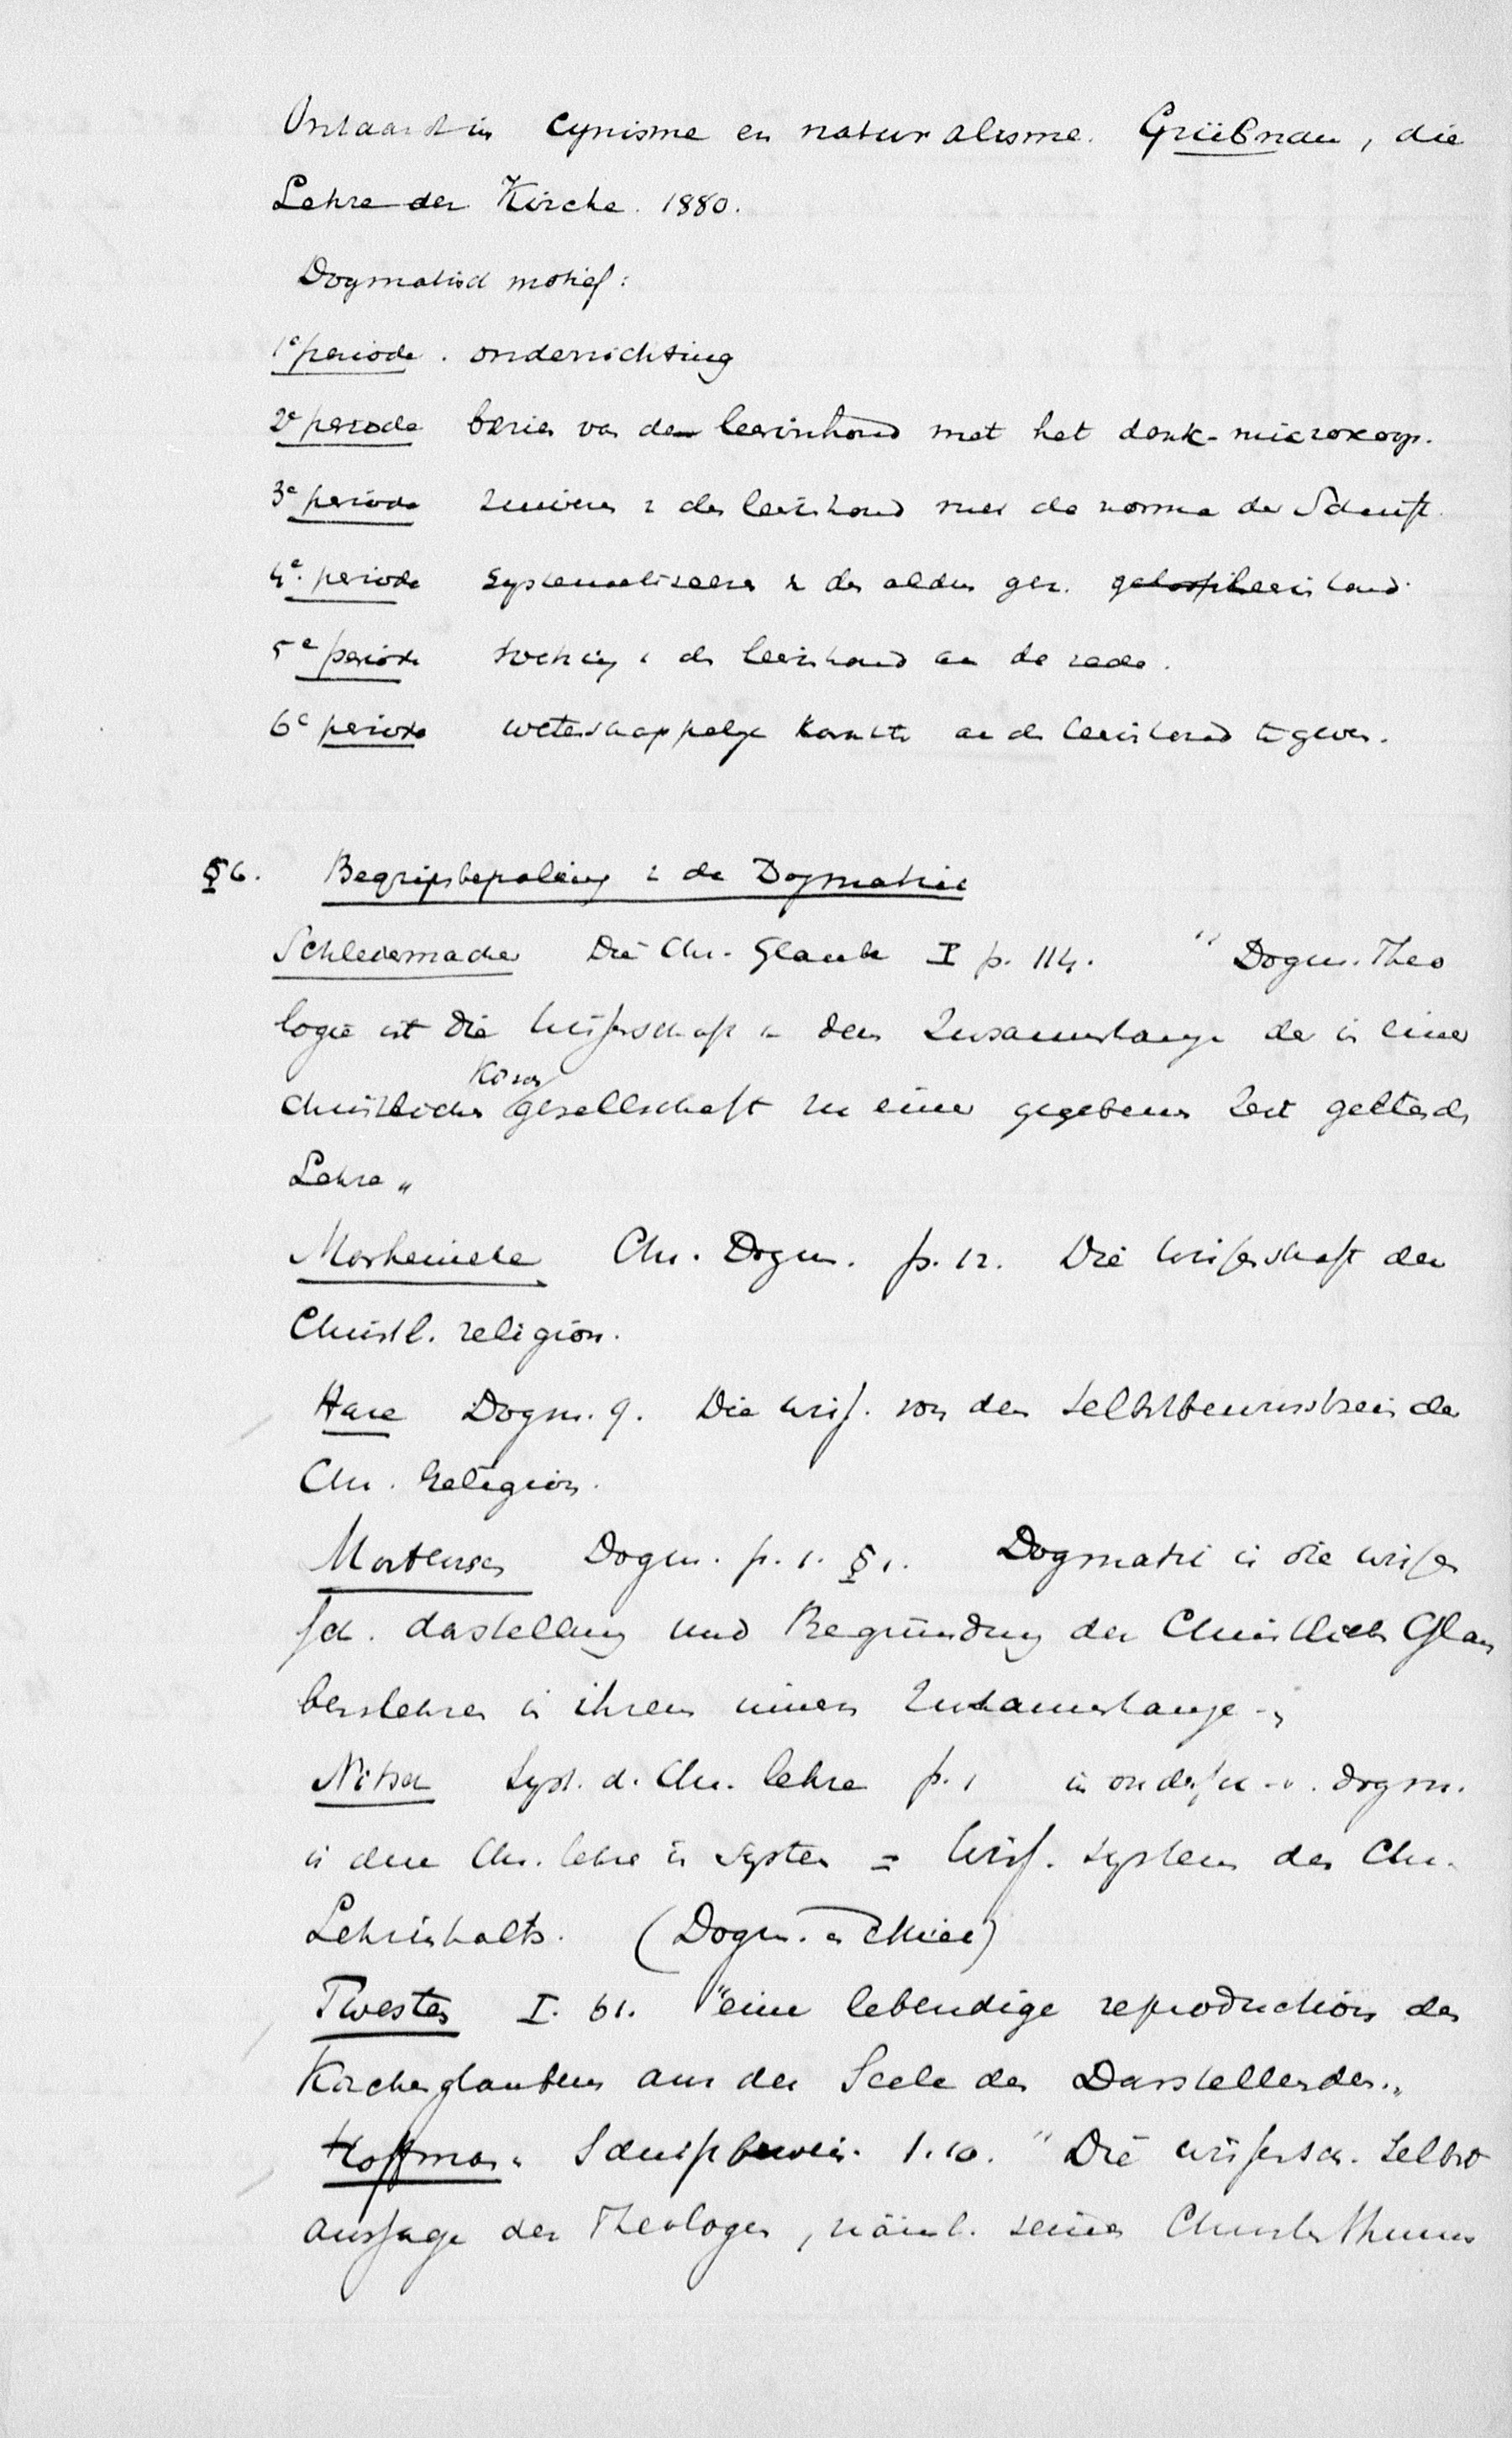 Ontaard in Cynisme en naturalisme. Grübnau, die
Lehre der Kirche. 1880.
Dogmatisch motief:
1e periode. onderrichting
2e periode bezien van den leerinhoud met het denk-microscoop.
3e periode zuiveren v. den leerinhoud met de norma der Schrift.
4e. periode Systematiseeren v. den aldus gez. leerinhoud.
5e periode v. den leerinhoud aan de rede.
6e periode wetenschappelijke karakter aan den leerinhoud te geven.
§6. Begripsbepaling v. de Dogmatiek
Schleiermacher Die Chr. Glaube I p. 114. "Dogm. Theo
logie ist die Wissenschaft v. dem Zusammenhange der in einer
christlichen Kirchen gesellschaft zu einer gegebenen Zeit geltende
Lehre"
Marheineke Chr. Dogm. p. 12. Die Wissenschaft der
Christl. religion.
Hase Dogm. 9. Die Wiss. von dem Selbstbewusstsein der
Chr. Religion.
Martensen Dogm. p. 1. §1. Dogmatik is die wissen
sch. darstellung und Begründung der Christlichen Glau
benslehren in ihrem innern Zusammenhange
Nitzsch Syst. d. Chr. Lehre p. 1 in ondersch. v. dogm.
is den Chr. lehre in System = Wiss. System des Chr.
Lehrinhalts. (Dogm. en Ethiek)
Twesten I. 61. "eine lebendige reproduction des
Kirchenglaubens aus der Seele des Darstellenden"
Hoffman Schriftbeweis. 1.10. "Die wissensch. Selbst
aussage der Theologen, näml. seines Christenthums